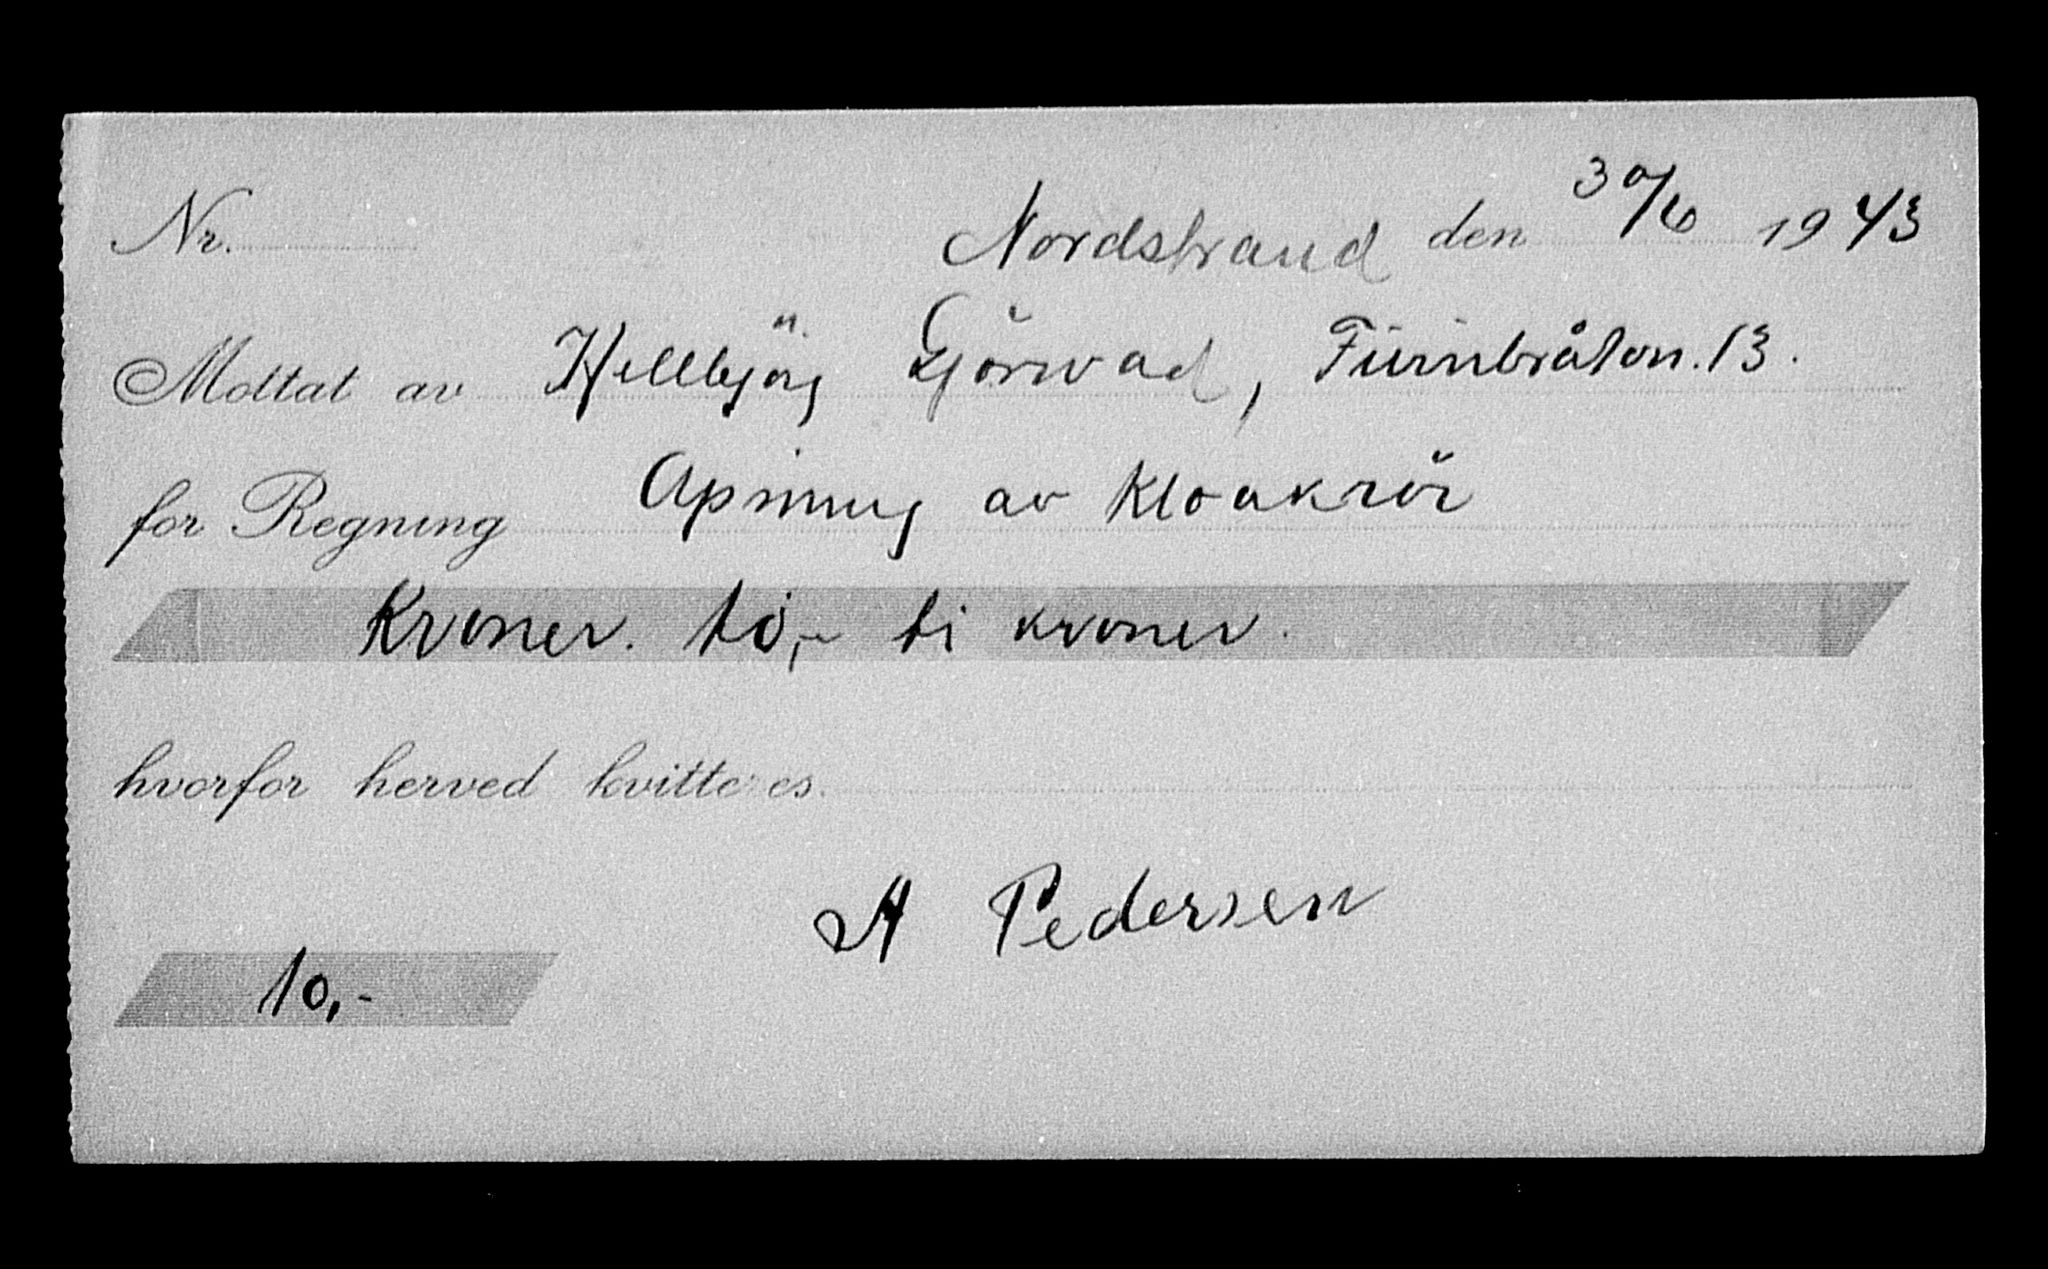 Nr. Nordstrand den 30/6 1943
Mottat av Hellbjörg Görvad, Furubråtvn. 13.
for Regning Åpning av Kloakrör
Kroner. 10,- ti kroner.
hvorfor herved kvitteres.
A Pedersen
10,-